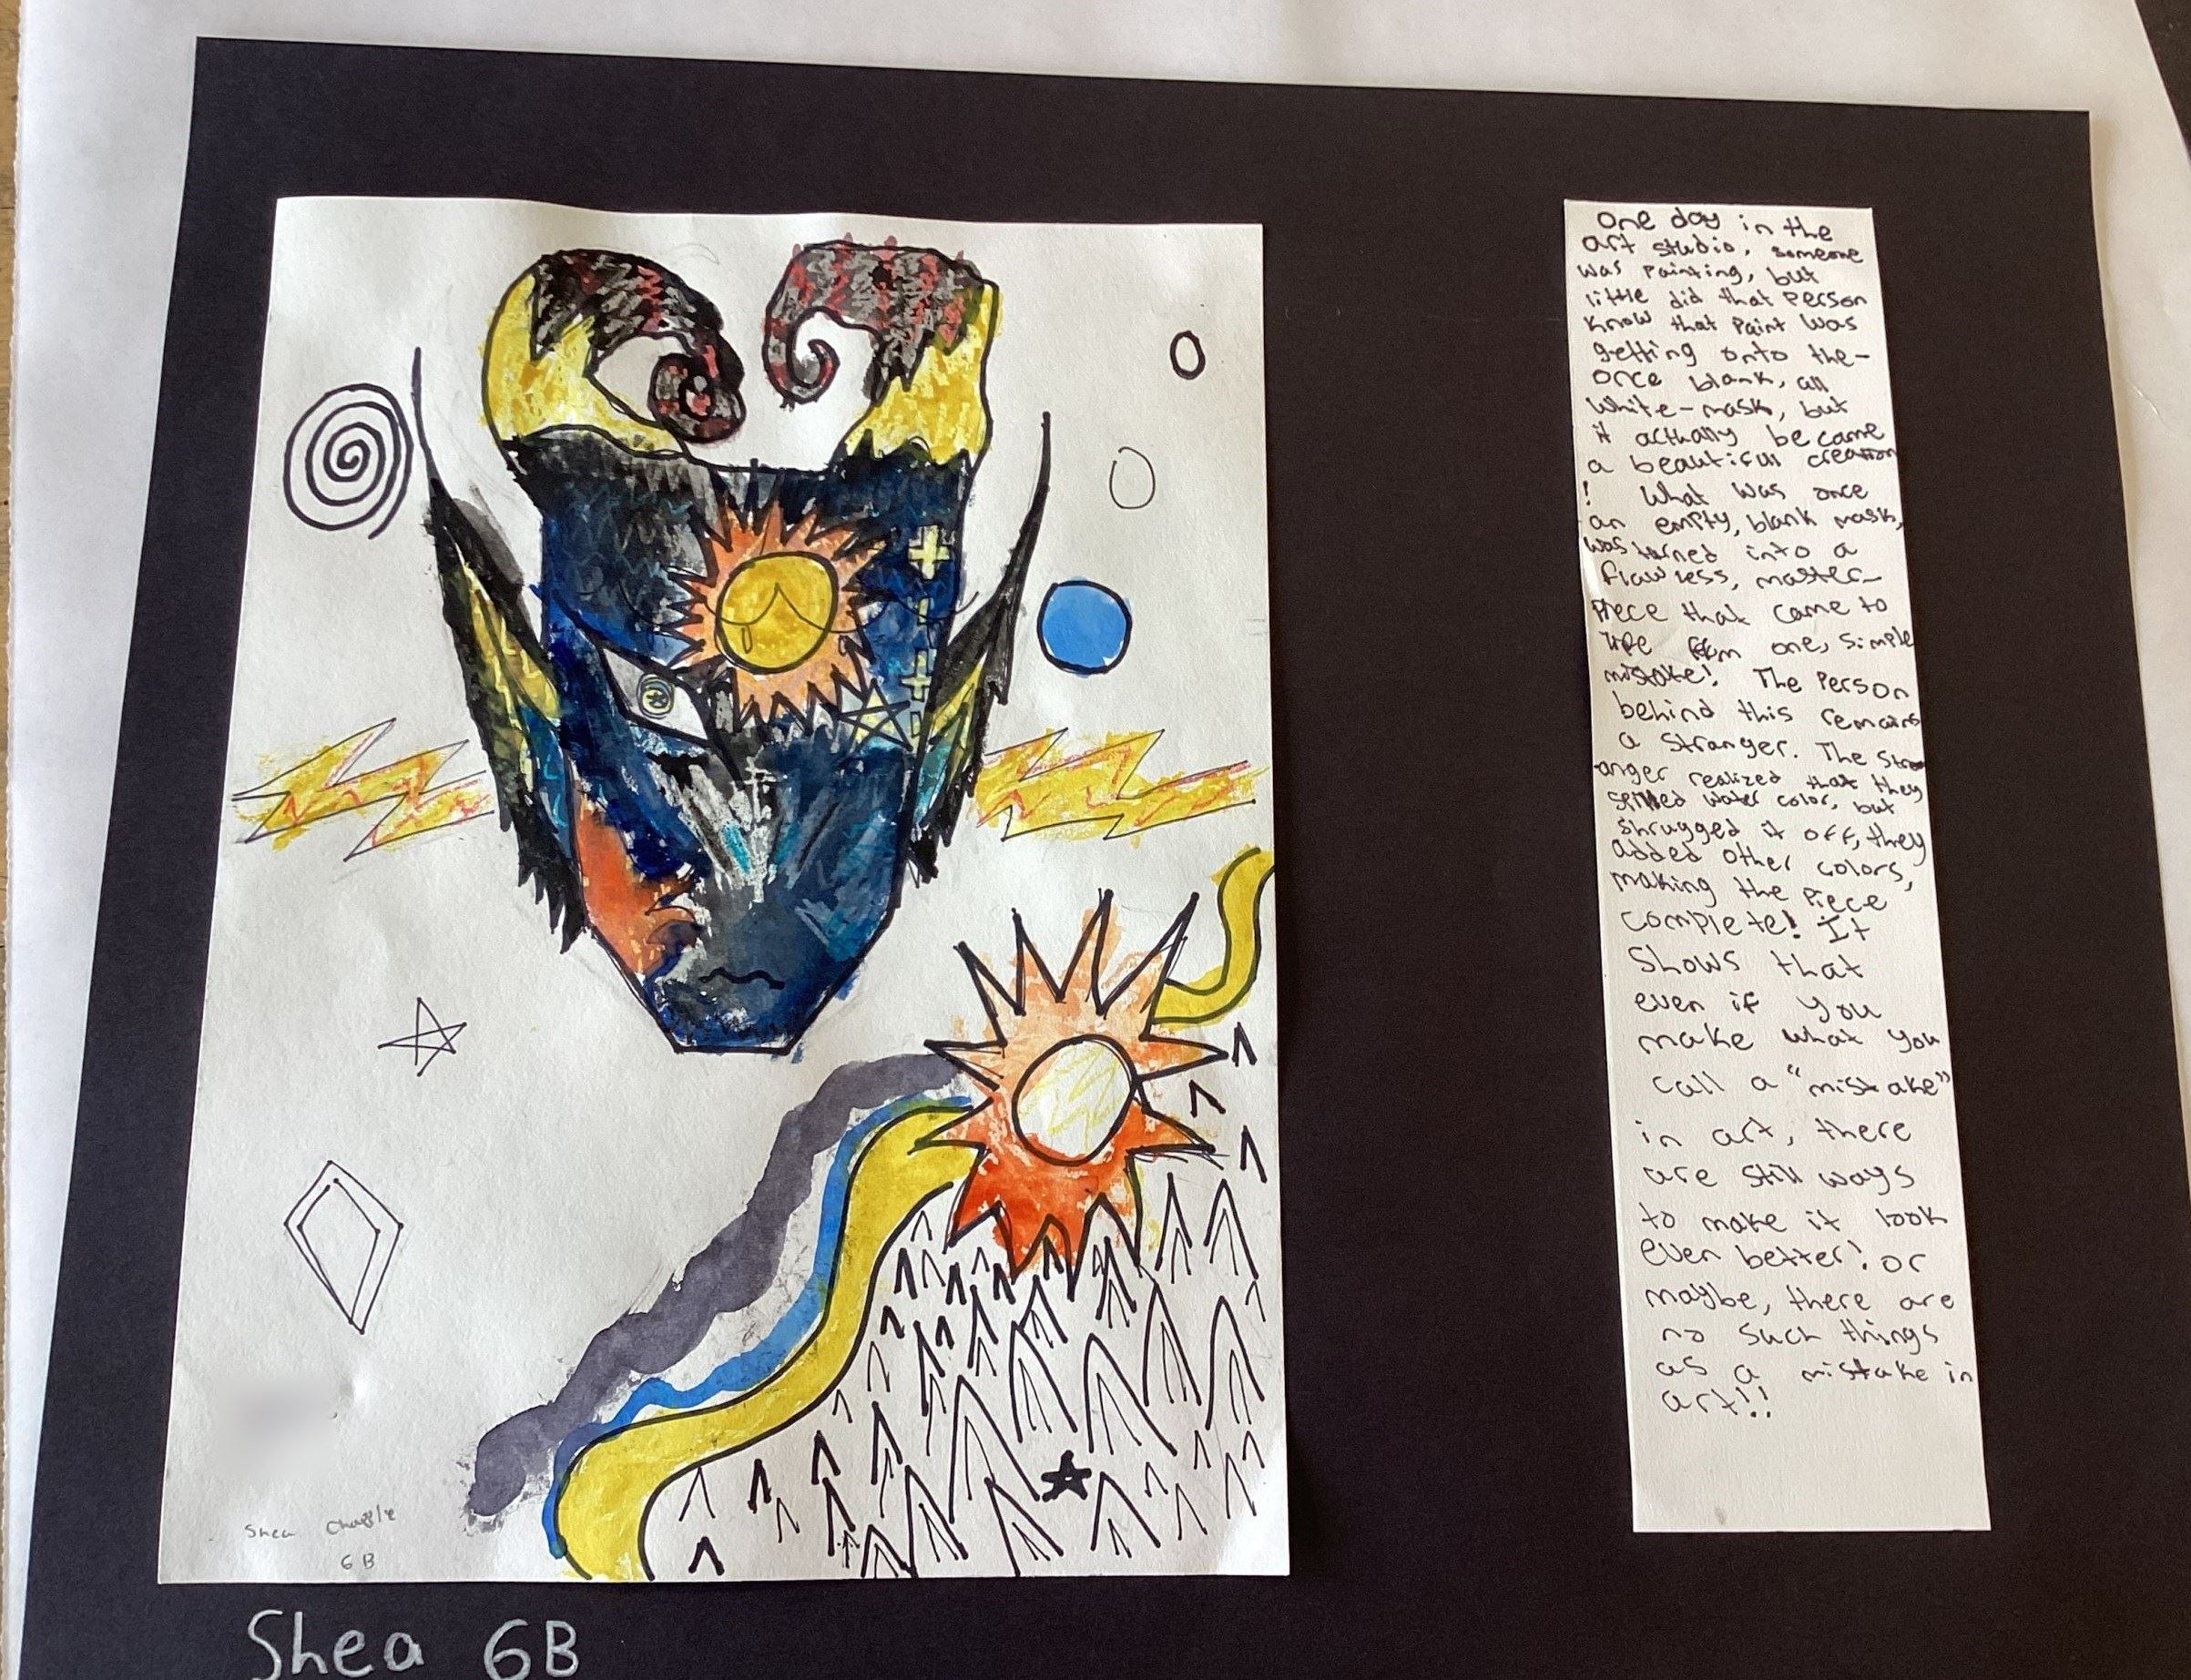 One day in the
art studio, someone
was painting, but
little did that person
know that paint was
getting onto the-
once blank, all
white-mask, but
it acthally became
a beautifull creation
! What was once
an empty, blank mask,
was turned into a
flawless, master-
piece that came to
life from one, simple
mistake! The person
behind this remains
a stranger. The str-
anger realized that they
spilled water color, but
shrugged it off, they
added other colors,
making the piece
complete! It
shows that
even if you
make what you
call a "mistake"
in art, there
are still ways
to make it look
even better! or
maybe, there are
no such things
as a mistake in
art!!
Shea
6B
Shea 6B